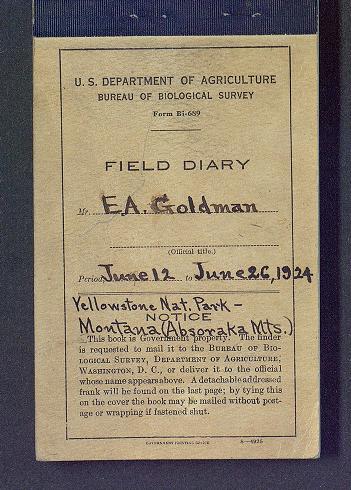 U. S. DEPARTMENT OF AGRICULTURE
BUREAU OF BIOLOGICAL SURVEY
Form Bi-689
FIELD DIARY
Mr. E.A. Goldman
(Official title.)
Period, June 12 to June 26, 1924
Yellowstone Nat. Park -
NOTICE
Montana (Absoraka Mts.)
This book is Government property. The finder
is requested to mail it to the BUREAU OF BIO-
LOGICAL SURVEY, DEPARTMENT OF AGRICULTURE,
WASHINGTON, D. C., or deliver it to the official
whose name appears above. A detachable addressed
frank will be found on the last page; by tying this
on the cover the book may be mailed without post-
age or wrapping if fastened shut.
GOVERNMENT PRINTING OFFICE